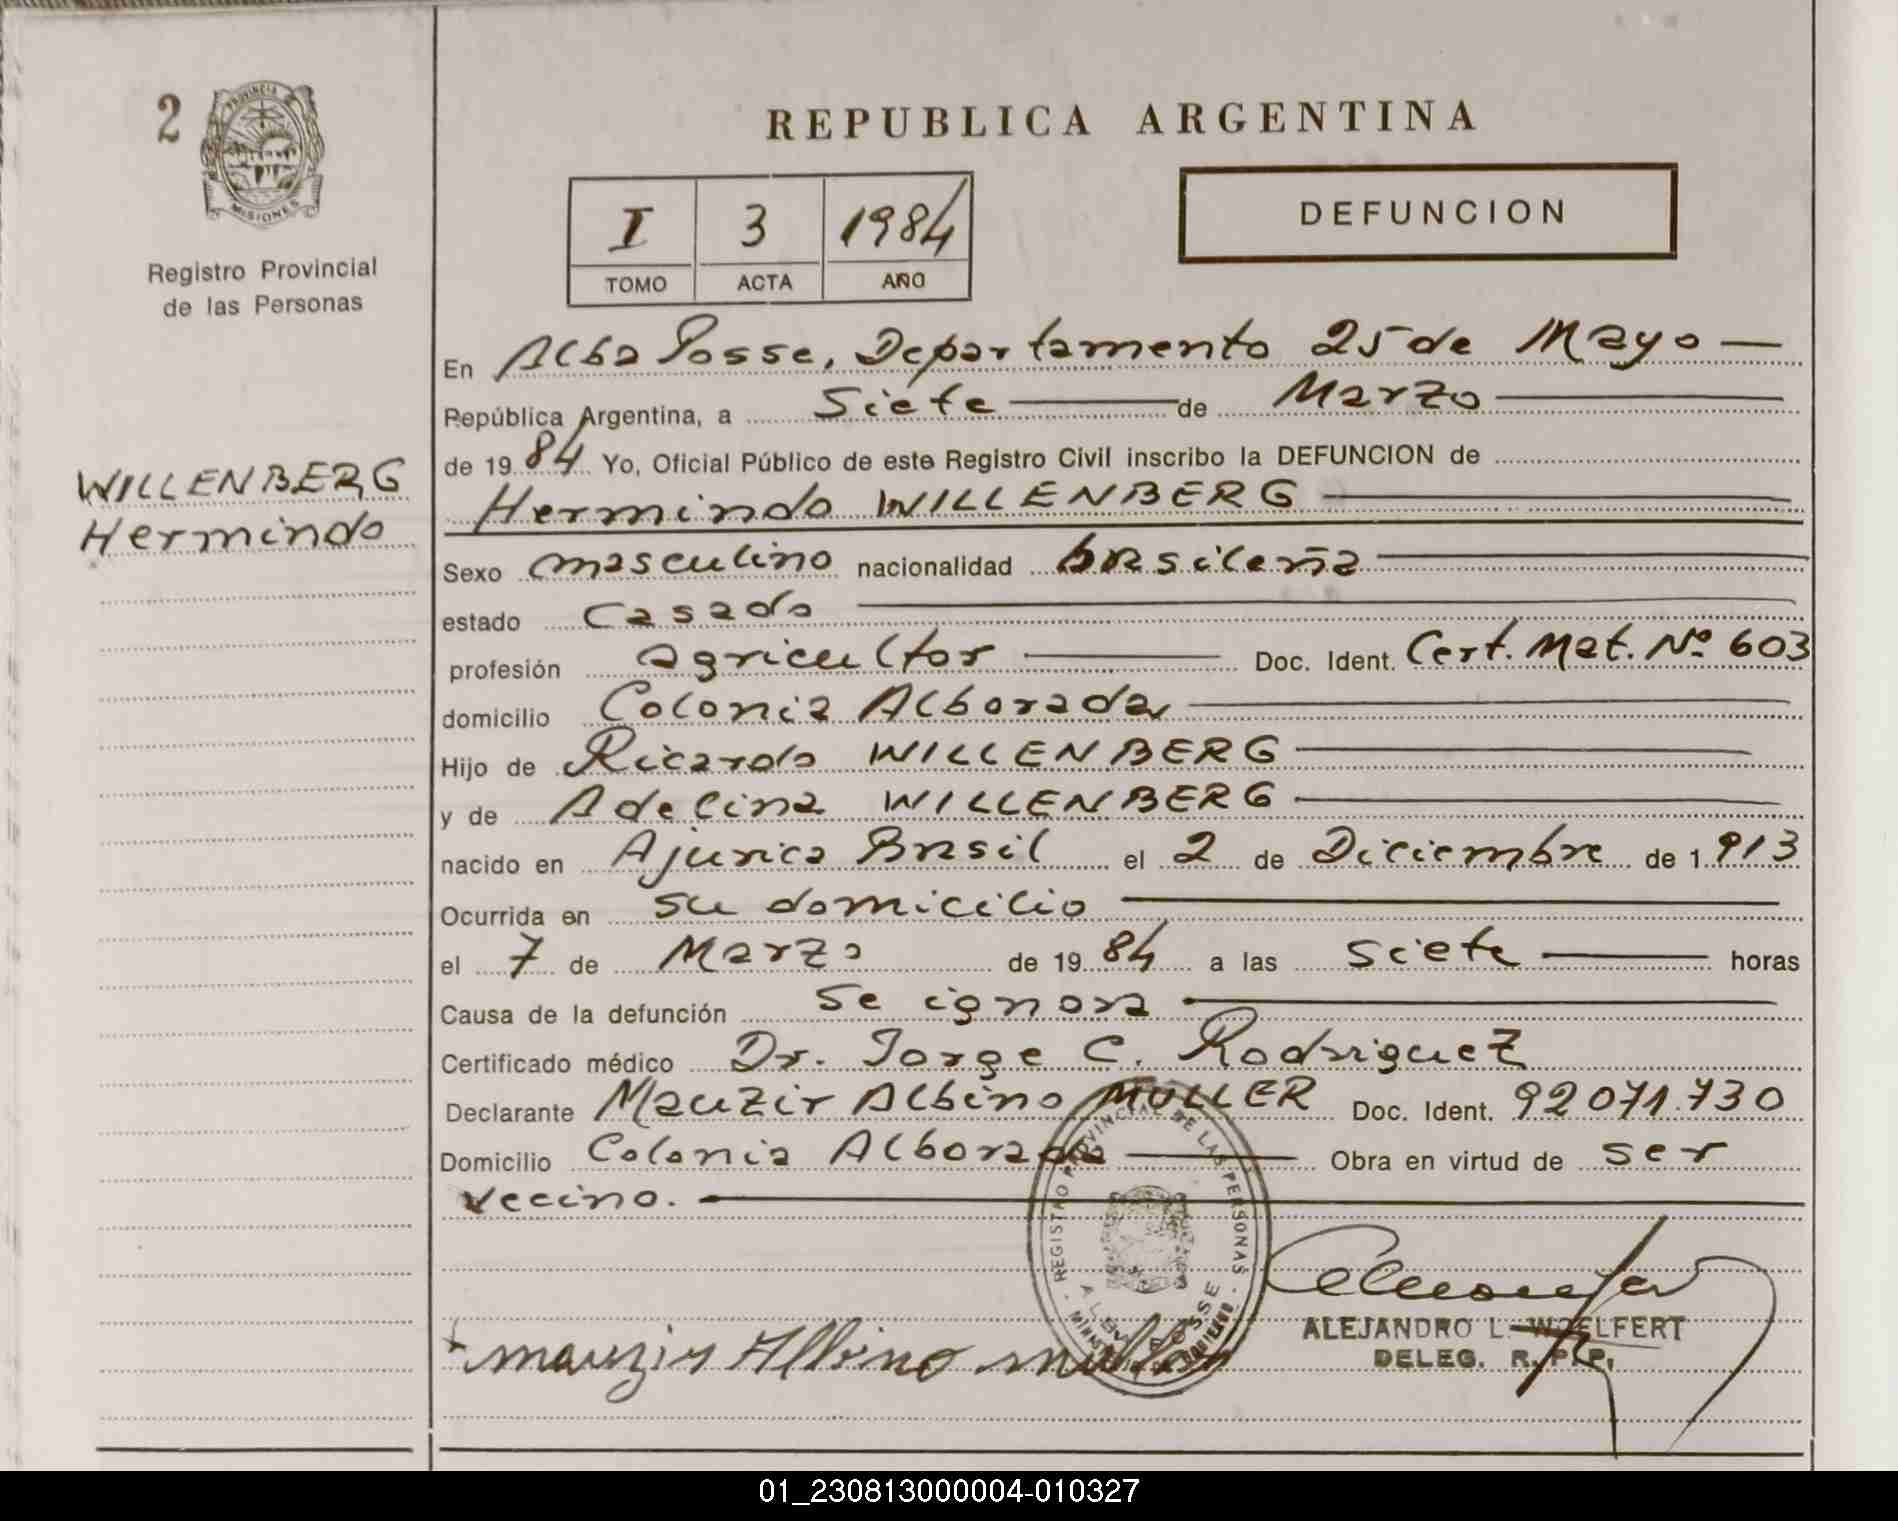 2
PROVINCIA DE
MISIONES
Registro Provincial
de las Personas
WILLENBERG
Hermindo
REPUBLICA ARGENTINA
I 3 1984
TOMO ACTA AÑO
DEFUNCION
En Alba Posse, Departamento 25 de Mayo
República Argentina, a Siete de Marzo
de 1984 Yo, Oficial Público de este Registro Civil inscribo la DEFUNCION de
Hermindo WILLENBERG
Sexo masculino nacionalidad brasileña
estado Casado
profesión agricultor Doc. Ident. Cert. Mat. Nº 603
domicilio Colonia Alborada
Hijo de Ricardo WILLENBERG
y de Adelina WILLENBERG
nacido en Ajurica Brasil el 2 de Diciembre de 1.913
Ocurrida en su domicilio
el 7 de Marzo de 1984 a las siete horas
Causa de la defunción se ignora
Certificado médico Dr. Jorge C. Rodriguez
Declarante Mauzir Albino MULLER Doc. Ident. 92071.730
Domicilio Colonia Alborada Obra en virtud de ser
vecino.
REGISTRO PROVINCIAL DE LAS PERSONAS
ALBA POSSE
mauzir Albino muller
ALEJANDRO L. WOELFERT
DELEG. R. P. P.
01_230813000004-010327